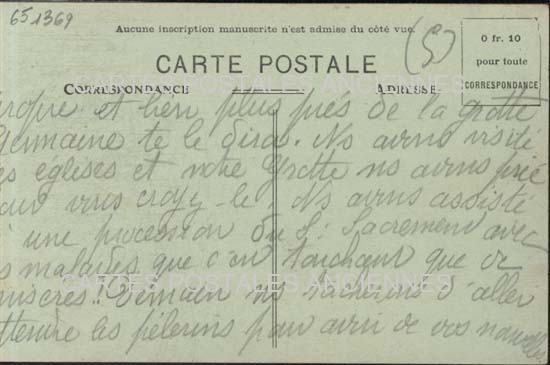 651369
Aucune inscription manuscrite n'est admise du côté vue.
(5)
0 fr. 10
pour toute
CORRESPONDANCE
CARTE POSTALE
CORRESPONDANCE
ADRESSE
et bien plus près de la grotte
Germaine te le dira. Ns avons visité
es eglises et notre Grotte ns avons prié
our vous croyez-le. Ns avons assisté
à une procession du S. Sacrement avec
s malades que c'en touchant que de
misères! Demain ns tacherons d'aller
ttendre les pèlerins pour avoir de vos nouvelles
CARTES POSTALES ANCIENNES
CARTES POSTALES ANCIENNES